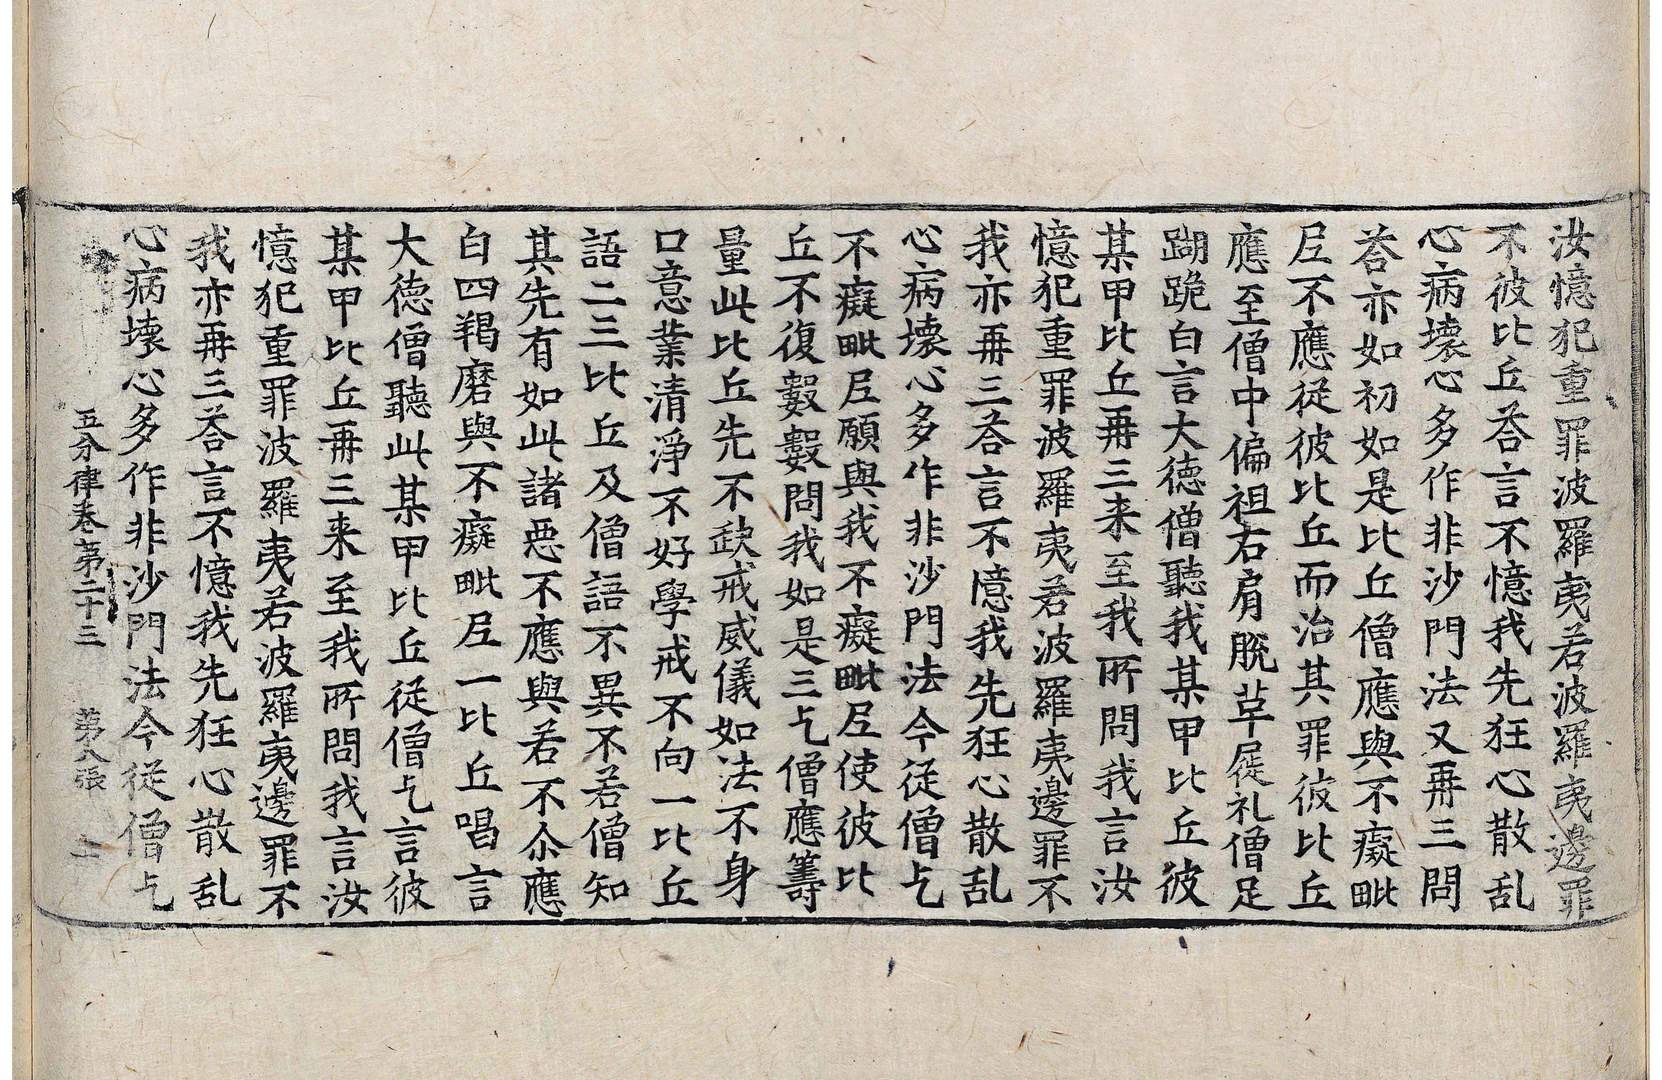 汝憶犯重罪波羅夷若波羅夷邊罪
不彼比丘荅言不憶我先狂心散乱
心病壞心多作非沙門法又再三問
荅亦如初如是比丘僧應與不癡毗
尼不應從彼比丘而治其罪彼比丘
應至僧中偏袒右肩脫草屣礼僧足
𨄔跪白言大德僧聽我某甲比丘彼
某甲比丘再三来至我所問我言汝
憶犯重罪波羅夷若波羅夷邊罪不
我亦再三荅言不憶我先狂心散乱
心病壞心多作非沙門法今從僧乞
不癡毗尼願與我不癡毗尼使彼比
丘不復數數問我如是三乞僧應籌
量此比丘先不缺戒威儀如法不身
口意業清淨不好學戒不向一比丘
語二三比丘及僧語不異不若僧知
其先有如此諸惡不應與若不尒應
白四羯磨與不癡毗尼一比丘唱言
大德僧聽此某甲比丘從僧乞言彼
某甲比丘再三来至我所問我言汝
憶犯重罪波羅夷若波羅夷邊罪不
我亦再三荅言不憶我先狂心散乱
心病壞心多作非沙門法今從僧乞
五分律卷第二十三 第八張